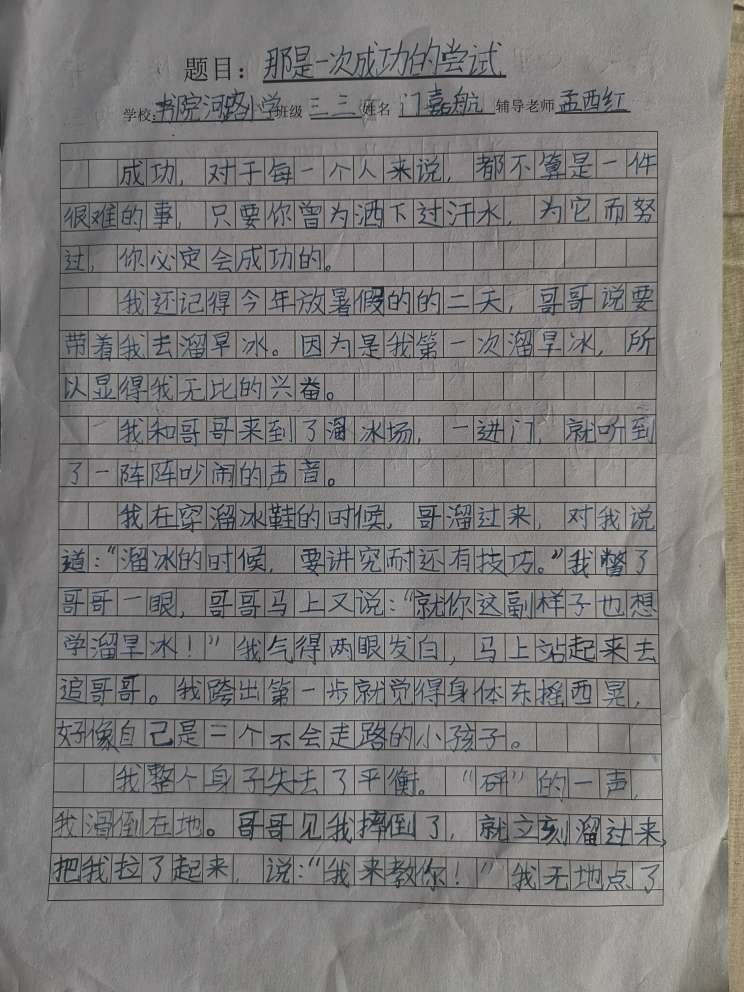 题目：那是一次成功的尝试
学校：书院河路小学班级 三三 姓名 门嘉航 辅导老师 孟西红
成功，对于每一个人来说，都不算是一件
很难的事，只要你曾为洒下过汗水，为它而努
过，你必定会成功的。
我还记得今年放暑假的的二天，哥哥说要
带着我去溜旱冰。因为是我第一次溜旱冰，所
以显得我无比的兴奋。
我和哥哥来到了溜冰场，一进门，就听到
了一阵阵吵闹的声音。
我在穿溜冰鞋的时候，哥溜过来，对我说
道：“溜冰的时候，要讲究耐还有技巧。”我瞥了
哥哥一眼，哥哥马上又说：“就你这副样子也想
学溜旱冰！”我气得两眼发白，马上站起来去
追哥哥。我跨出第一步就觉得身体东摇西晃，
好像自己是三个不会走路的小孩子。
我整个身子失去了平衡。“砰”的一声，
我滑倒在地。哥哥见我摔倒了，就立刻溜过来，
把我拉了起来，说：“我来教你！”我无地点了